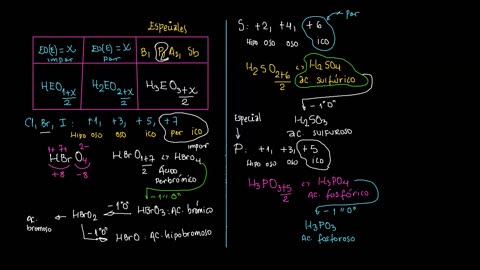 Especiales
EO(E) = X
impar
EO(E) = X
par
B, P, As, Sb
HEO 1+X/2
H2EO 2+X/2
H3EO 3+X/2
Cl, Br, I : +1, +3, +5, +7
Hipo oso oso ico per ico
impar
1+ 7+ 2-
HBrO4
+8 -8
HBrO 1+7/2 ↔ HBrO4
Ácido
perbrómico
-1"O"
HBrO3: Ac. brómico
-1"O"
HBrO2
Ac.
bromoso
-1"O"
HBrO : Ac. hipobromoso
S: +2, +4, +6
par
Hipo oso oso ico
H2SO 2+6/2 ↔ H2SO4
ac. sulfúrico
-1"O"
H2SO3
ac. sulfuroso
Especial
P: +1, +3, +5
Hipo oso oso ico
H3PO 3+5/2 ↔ H3PO4
ac. fosfórico
-1"O"
H3PO3
ac. fosforoso